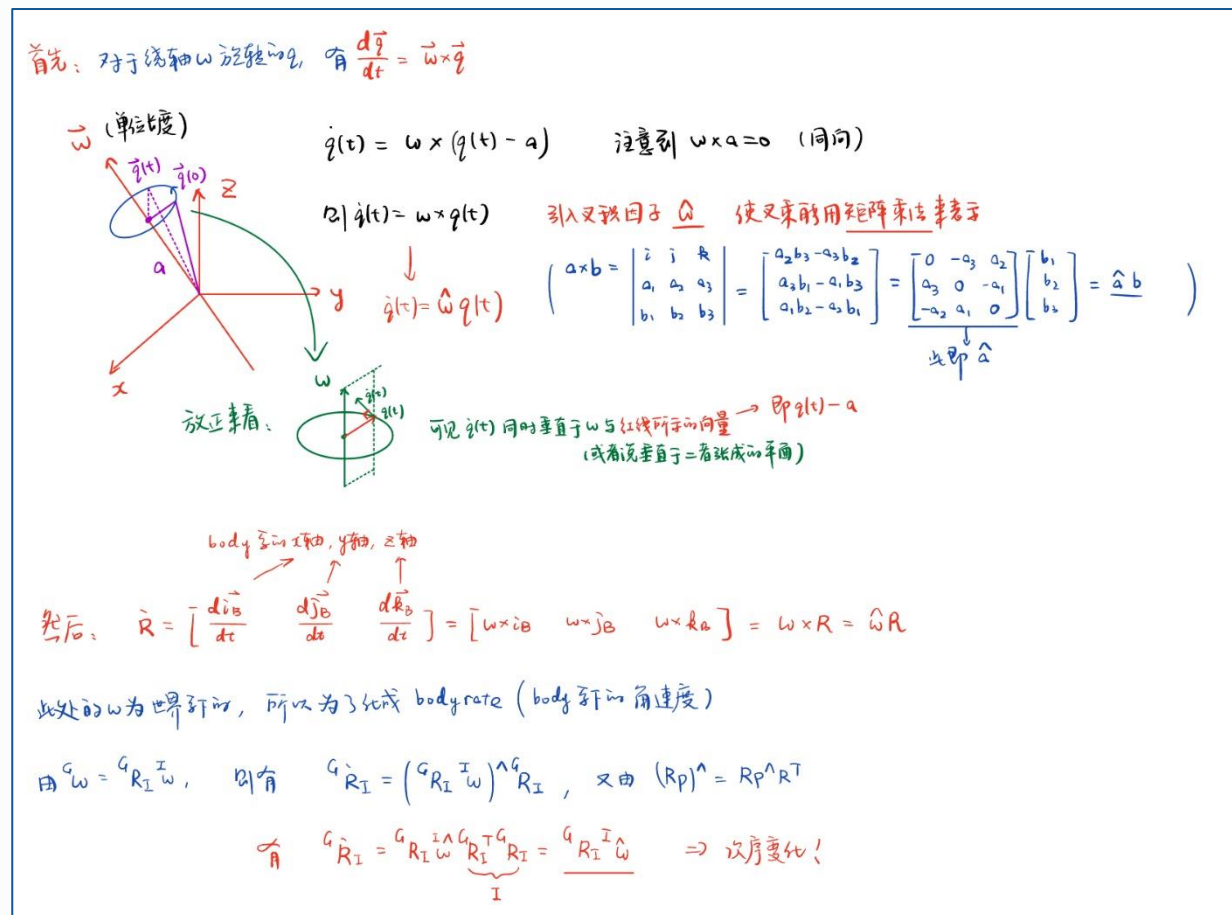 首先: 对于绕轴ω旋转的q, 有 dq⃗/dt = ω⃗×q⃗
ω⃗ (单位长度)
q̇(t) = ω × (q(t) - a) 注意到 ω×a=0 (同向)
q⃗(t) q⃗(0) z
则 q̇(t) = ω×q(t) 引入叉积因子 ω̂ 使叉乘能用矩阵乘法来表示
a y x
q̇(t) = ω̂ q(t)
( a×b = | i j k ; a₁ a₂ a₃ ; b₁ b₂ b₃ | = [ a₂b₃-a₃b₂ ; a₃b₁-a₁b₃ ; a₁b₂-a₂b₁ ] = [ 0 -a₃ a₂ ; a₃ 0 -a₁ ; -a₂ a₁ 0 ] [ b₁ ; b₂ ; b₃ ] = â b )
此即 â
放正来看:
ω
q̇(t)
q(t)
可见 q̇(t) 同时垂直于ω与红线所示的向量 → 即q(t)-a
(或者说垂直于二者张成的平面)
body系的x轴, y轴, z轴
然后: Ṙ = [ di⃗_B/dt dj⃗_B/dt dk⃗_B/dt ] = [ ω×i_B ω×j_B ω×k_B ] = ω×R = ω̂R
此处的ω为世界系下的, 所以为了化成 bodyrate (body系下的角速度)
由 ᴳω = ᴳR_I ᴵω, 则有 ᴳṘ_I = (ᴳR_I ᴵω)^ ᴳR_I , 又由 (Rp)^ = Rp^Rᵀ
有 ᴳṘ_I = ᴳR_I ᴵω̂ ᴳR_Iᵀ ᴳR_I = ᴳR_I ᴵω̂ ⇒ 次序变化!
I